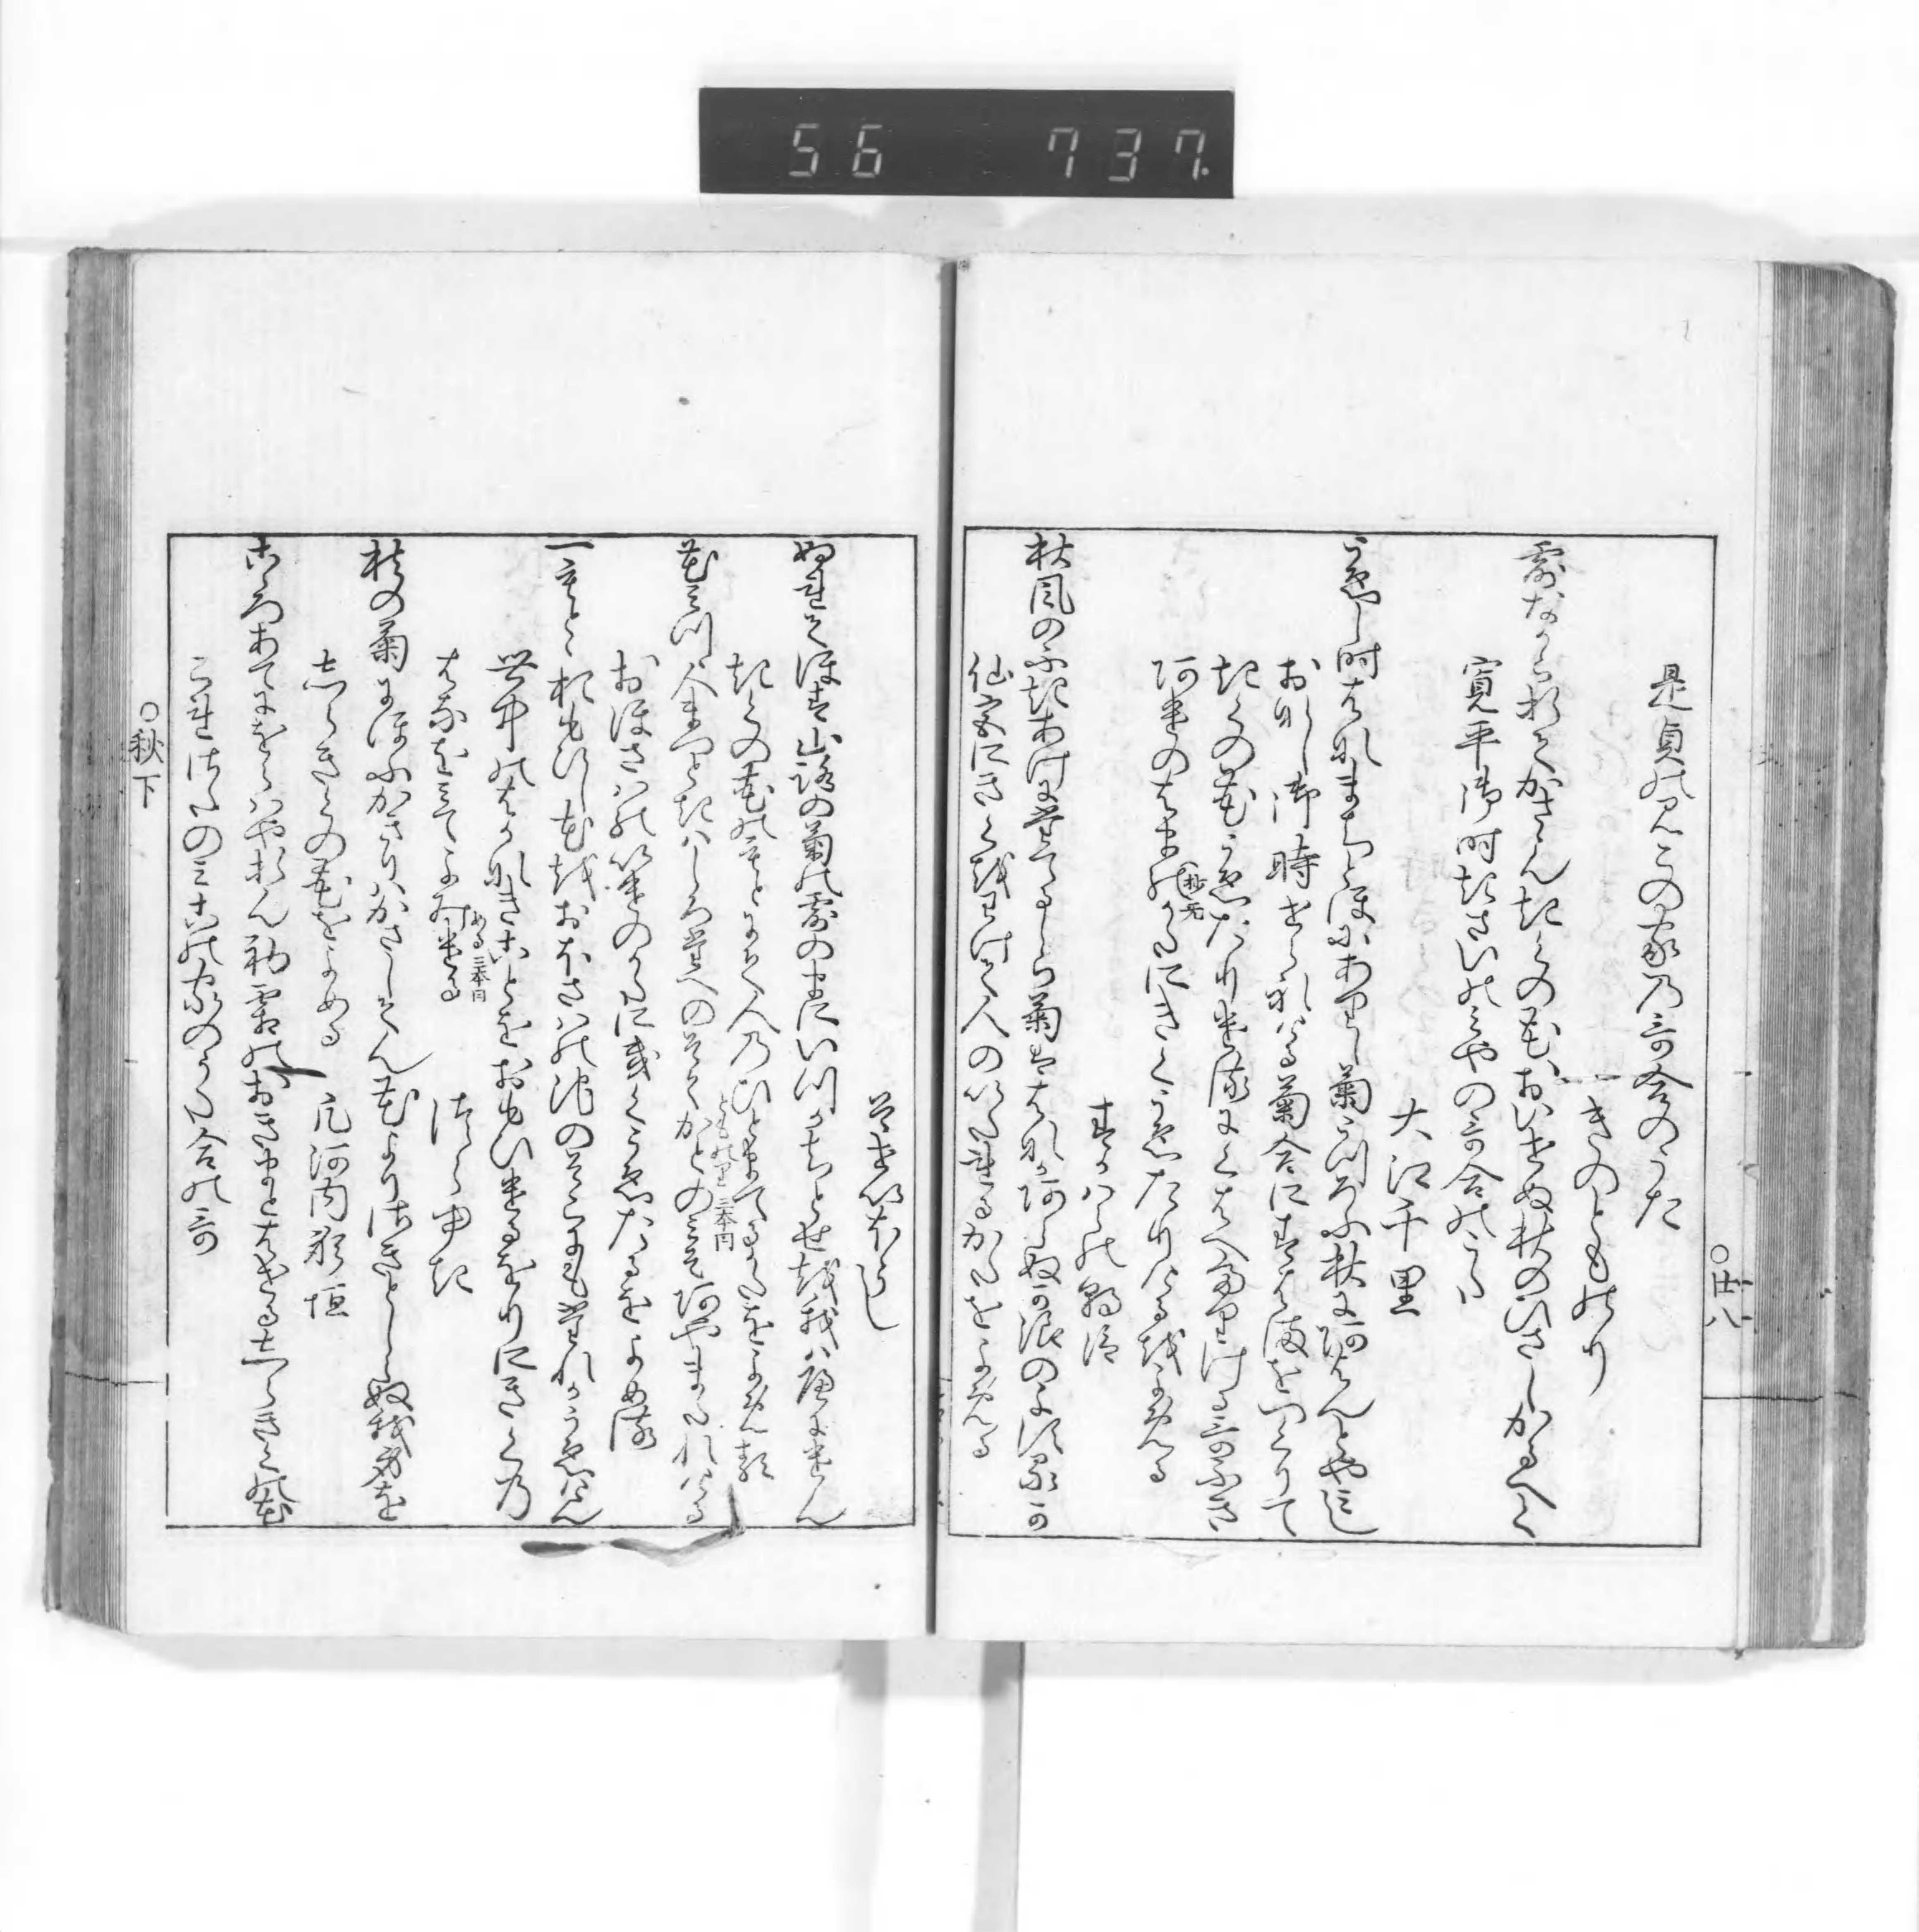 56 737.
是貞のみこの家乃哥合のうた
きのとものり
露なからおりてかさゝんきくの花おいせぬ秋のひさしかるへく
寛平御時きさいのみやの哥合のうた
大江千里
うゑし時はなまちとほにありし菊うつろふ秋にあはんとやみし
おなし御時せられける菊合にすはまをつくりて
きくの花うゑたりけるにくはへたりける哥ふき
あけのはまのかたにきくうゑたりけるをよめる
すかはらの朝臣
秋風のふきあけにたてるしら菊ははなかあらぬか浪のよするか
仙宮にきくをわけて人のいたれるかたをよめる
○廿八
そせいほうし
ぬれてほす山路の菊の露のまにいつかちとせを我はへにけん
きくの花のもとにて人乃ひとまてるかたをよめる
とものり 三本同
花みつゝ人まつときはしろたへのそてかとのみそあやまたれける
おほさはの池のかたにきくうゑたるをよめる
一もとゝおもひし花をおほさはの池のそこにもたれかうゑけん
世中のはかなきことをおもひけるをりにきく乃
はなをみてよみける
める 三本同
つらゆき
秋の菊にほふかきりはかさしてん花よりさきとしらぬ我身を
しらきくの花をよめる
凡河内躬恒
こゝろあてにをらはやおらん初霜のおきまとはせるしらきくの花
これさたのみこの家のうた合の哥
○秋下